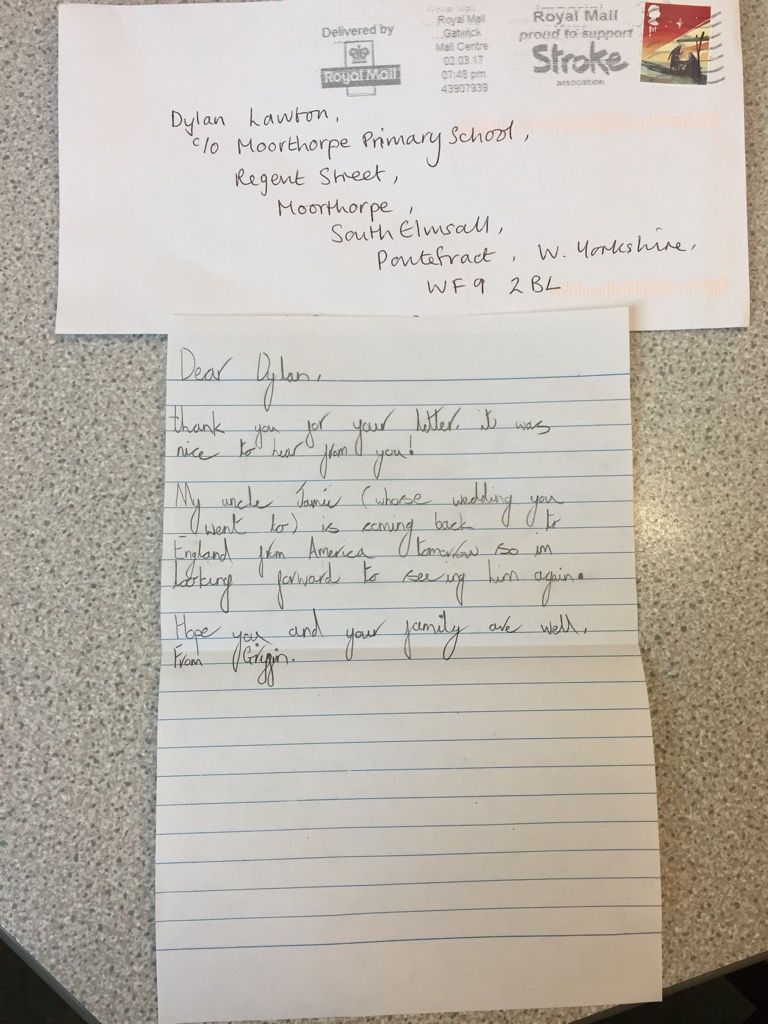 Delivered by
Royal Mail
Royal Mail
Gatwick
Mail Centre
02.03.17
07:45 pm
43907939
Royal Mail
proud to support
Stroke
association
1st
Dylan Lawton,
c/o Moorthorpe Primary School,
Regent Street,
Moorthorpe,
South Elmsall,
Pontefract, W. Yorkshire,
WF9 2BL
Dear Dylan,
thank you for your letter. it was
nice to hear from you!
My uncle Jamie (whose wedding you
went to) is coming back to
England from America tomorrow so im
looking forward to seeing him again.
Hope you and your family are well.
From Griffin.